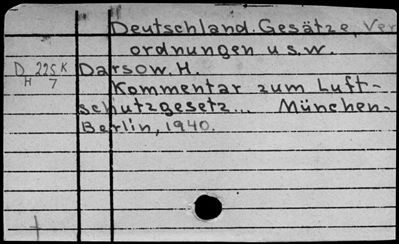 Deutschland. Gesätze, Ver
ordnungen u s.w.
D 225 K Darsow. H.
H 7 Kommentar zum Luft-
schutzgesetz... München-
Berlin, 1940.